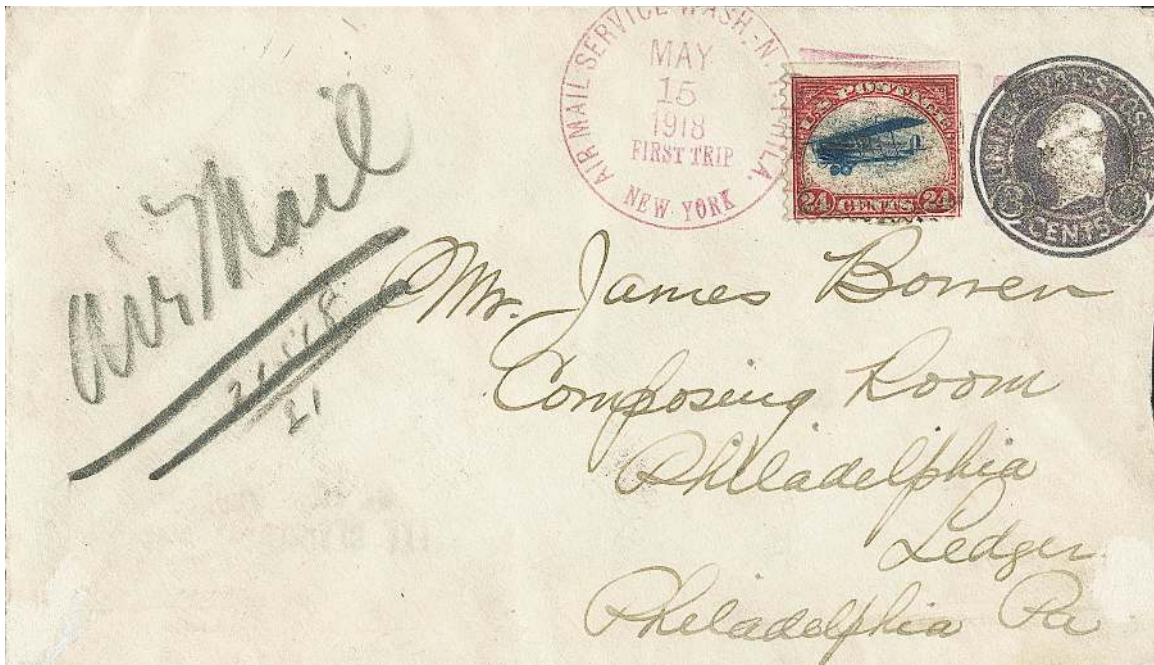 AIR MAIL SERVICE WASH.-N.Y.-PHILA.
MAY
15
1918
FIRST TRIP
NEW YORK
U.S. POSTAGE
24 CENTS 24
UNITED STATES POSTAGE
CENTS
Air Mail
21
Mr. James Bowen
Composing Room
Philadelphia
Ledger
Philadelphia Pa